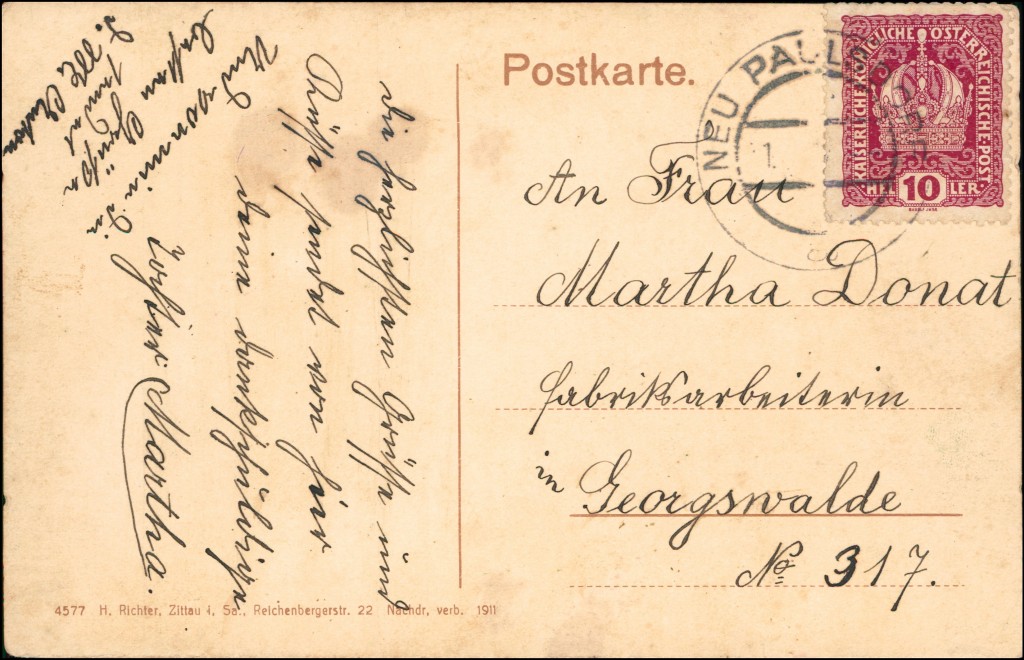 Postkarte.
NEU PAUL
KAISERLICHE KÖNIGLICHE ÖSTERREICHISCHE POST
HEL 10 LER.
An Frau
Martha Donat
fabriksarbeiterin
in Georgswalde
No 317.
die herzlichsten Grüße und
Küsse sendet von hier
deine dankschuldige
Tochter Martha.
Und von mir die
besten Grüße
4577 H. Richter, Zittau i, Sa., Reichenbergerstr. 22 Nachdr, verb. 1911